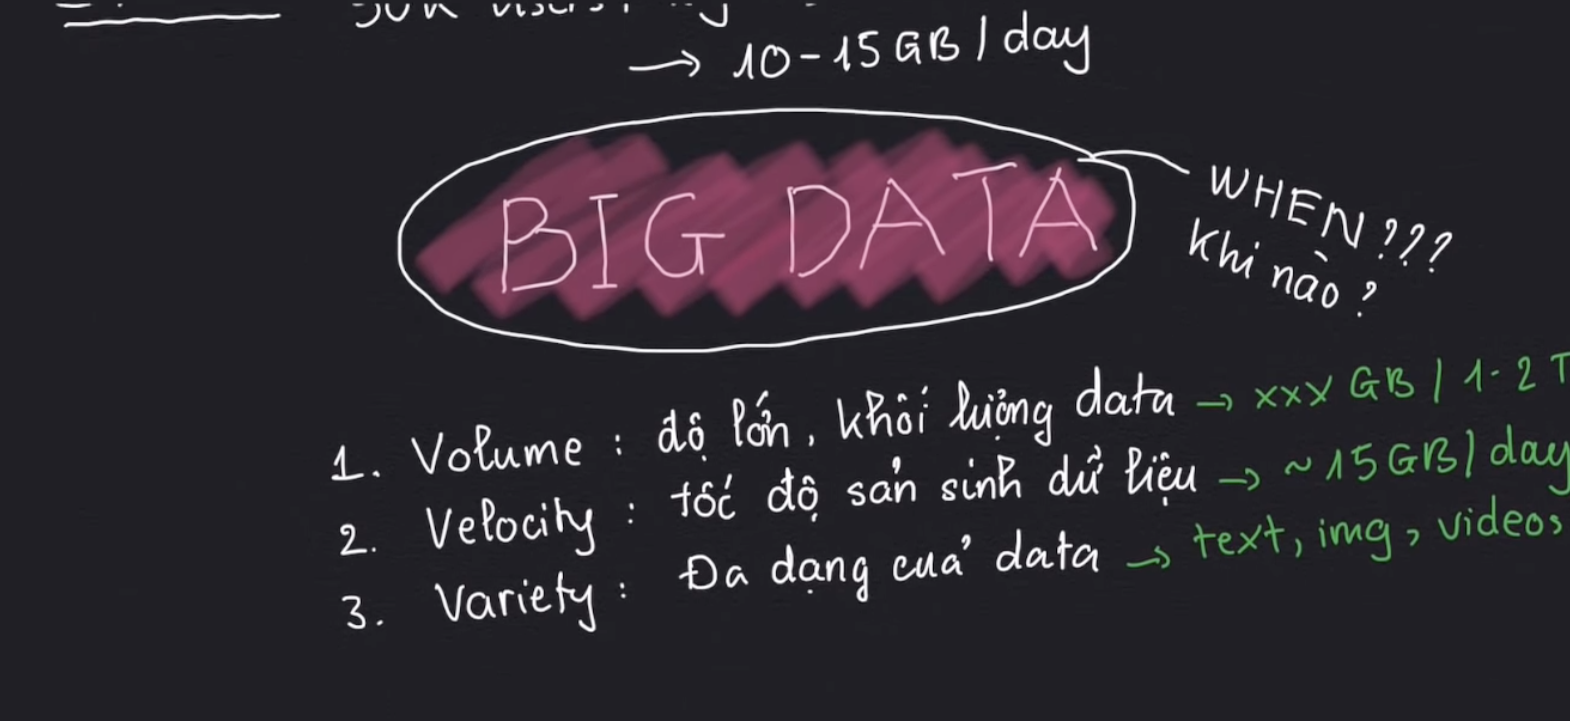 → 10-15GB / day
BIG DATA
WHEN???
Khi nào?
1. Volume : độ lớn, khối lượng data → xxx GB / 1-2 T
2. Velocity : tốc độ sản sinh dữ liệu → ~15GB / day
3. Variety : Đa dạng của data → text, img, videos